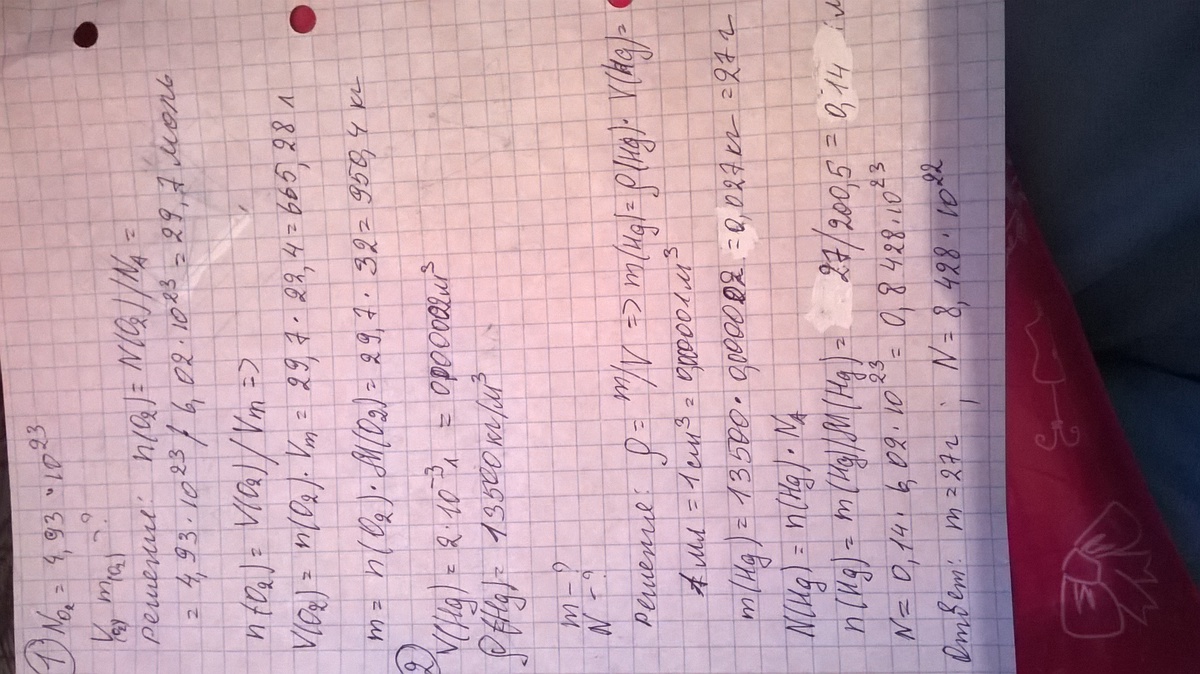 1) N O2 = 4,93 · 10^23
V(O2) m(O2) ?
решение: n(O2) = N(O2)/NA =
= 4,93 · 10^23 / 6,02 · 10^23 = 29,7 моль
n(O2) = V(O2)/Vm =>
V(O2) = n(O2) · Vm = 29,7 · 22,4 = 665,28 л
m = n(O2) · M(O2) = 29,7 · 32 = 950,4 кг
2)
V(Hg) = 2 · 10^-3 л = 0,000002м³
ρ(Hg) = 13500 кг/м³
m - ?
N - ?
решение: ρ = m/V => m(Hg) = ρ(Hg) · V(Hg) =
1 мл = 1 см³ = 0,000001м³
m(Hg) = 13500 · 0,000002 = 0,027 кг = 27 г
N(Hg) = n(Hg) · NA
n(Hg) = m(Hg)/M(Hg) = 27/200,5 = 0,14
N = 0,14 · 6,02 · 10^23 = 0,8428 · 10^23
Ответ: m = 27 г ; N = 8,428 · 10^22